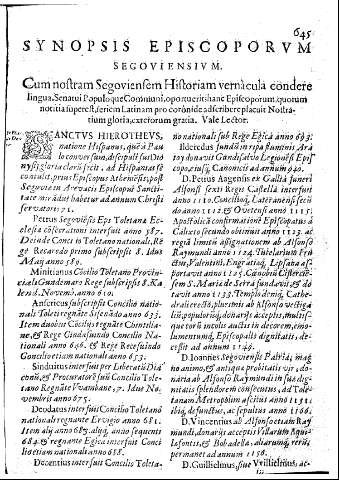 645
SYNOPSIS EPISCOPORVM
SEGOVIENSIVM.
Cum nostram Segoviensem Historiam vernacula condere
lingua, Senatui Populoque Communi, oportuerit; hanc Episcoporum, quorum
notitia superest, seriem Latinam pro coronide adscribere placuit Nostra-
tium gloria, cæterorum gratia. Vale Lector.
SANCTVS HIEROTHEVS,
natione Hispanus, què à Pau-
lo conversum, discipuli sui Dio
nysij gloria clarum fecit, ad Hispanias se
contulit, prius Episcopus Atheniensis, post
Segoviæ in Arevacis Episcopus Sancti-
tate
servatores 71.
Petrus Segoviensis Eps Toletana Ec-
clesia consecrationi interfuit anno 587.
Deinde Concilio Toletano nationali, Rè
ge Recaredo primo subscripsit 8. Idus
Maij anno 589.
Minitianus Cõcilio Toletano Provin-
ciali Gundemaro Rege subscripsit 8. Ka-
lend. Novemb. anno 610.
Anserícus subscripsit Concilio natio-
nali Toleti regnate Sisenando anno 633.
Item duobus Cõcilijs regnate Chintilla-
ne, & Rege Cindasvindo Concilio Na-
tionali anno 646. & Rege Recesvindo
Concilio etiam nationali anno 653.
Sinduitus interfuit per Liberatũ Dia-
conũ, & Procuratorẽ suũ Concilio Tole-
tano Regnate VVambane, 7. Idus No-
vembris anno 675.
Deodatus interfuit Concilio Toletano
nationali regnante Ervigio anno 681.
Item alij anno 683. alijq; anno sequenti
684. & regnante Egica interfuit Conci
lio etiam nationali anno 688.
Decentius interfuit Concilio Toleta-
no nationali sub Rege Egica anno 693.
Ilderedus Iandiũ in ripa fluminis Ara
toy donavit Gandesalvo Legionẽsi Epi-
scopo, eiusq; Canonicis ad annum 940.
D. Petrus Aagensis ex Gallia funeri
Alfonsi sexti Regis Castella interfuit
anno 1110. Concilioq; Lateranensi secũ
do anno 1112. & Ovetensi anno 1115.
Apostolica confirmatione Episcopatus à
Calixto secundo obtinuit anno 1123. at-
regiâ limitũ assignationem ab Alfonso
Raymundi anno 1124. Tutelarium Fru-
ctus, Valentini, Engratiæq; Lipsana as-
portavit anno 1125.
S. Mariæ de Serra fundavit, & do-
tavit anno 1133. Templo deniq; Cathe-
drali erecto, illustris ab Alfonso vestiga
liũ, populorũq; donarijs acceptis, multis-
que tum incolis auctis in decorem, emo-
lumentumq; Episcopalis dignitatis, de-
cessit ad annum 1149.
D. Ioannes, Segoviensis Patria, ma-
no animo, & antiqua probitatis vir, do-
nata ab Alfonso Raymundi in sua digni-
tatis splendorem consecutus, ad Tole-
tanam Metropolim ascitus anno 1151
ibiq; defunctus, ac sepultus anno 1166.
D. Vincentius ab Alfonso etiam Ray-
mundi, donarijs acceptis Villarum Agui-
lafontis, & Bobadella, aliarumq; rerũ,
permanet ad annum 1156.
D. Guillielmus, sive VVillielmus, ac-